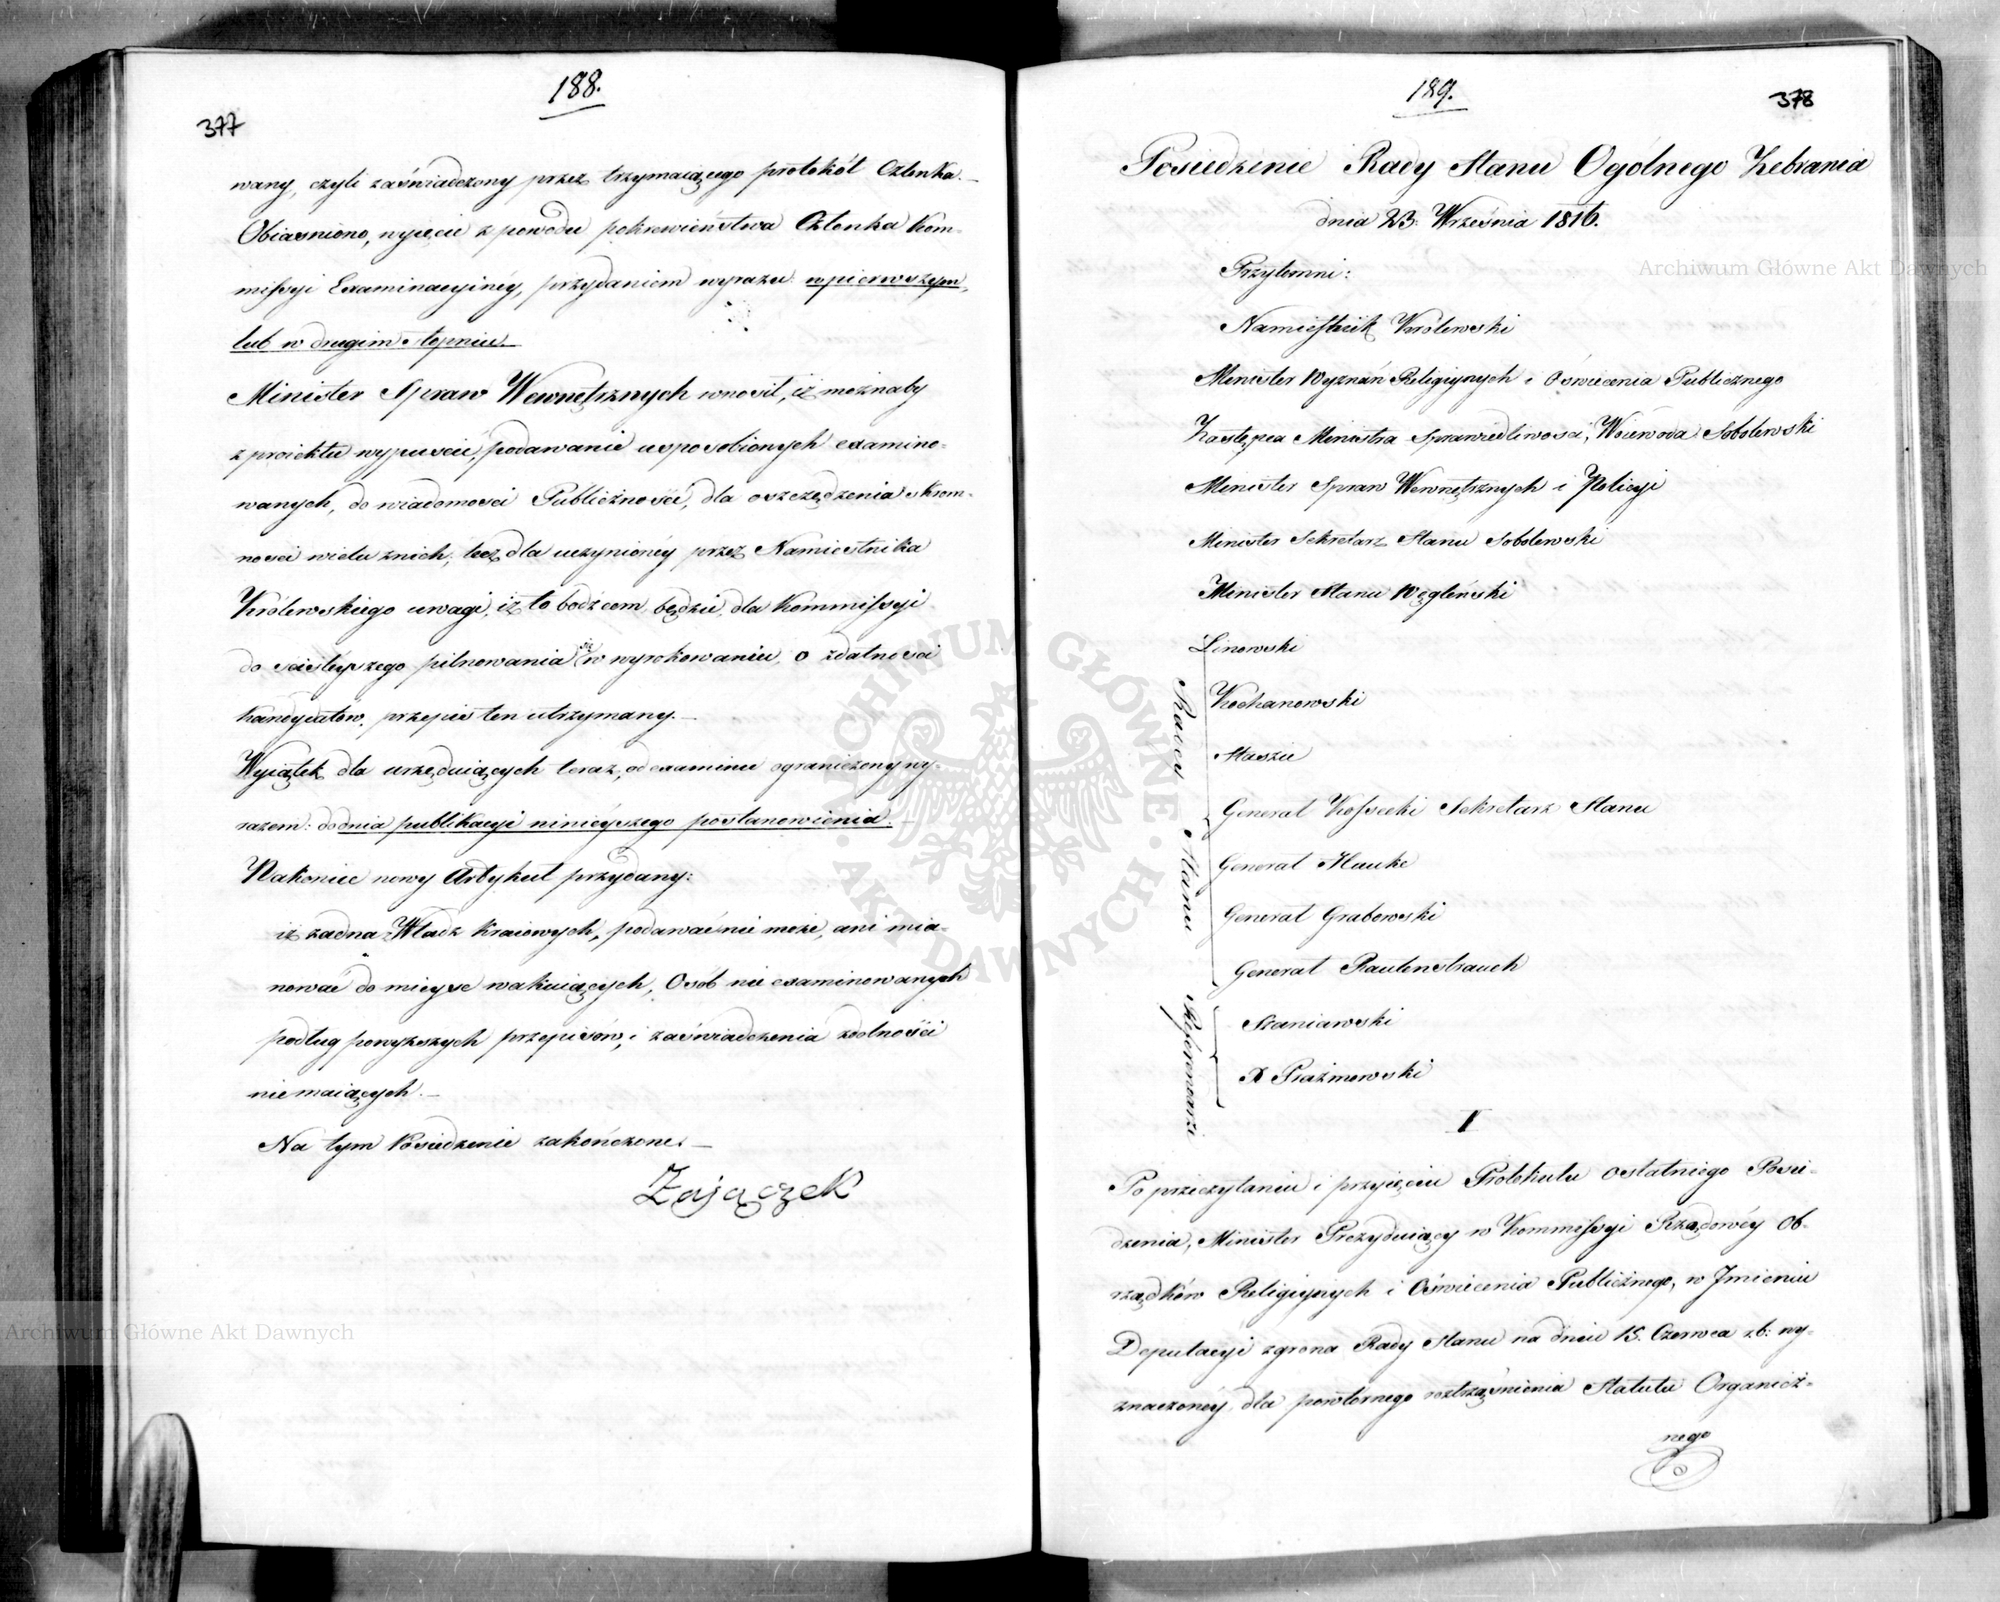 188.
377
wany, czyli zaświadczony przez trzymaiącego protokół Członka.—
Obiaśniono, wyjęcie z powodu pokrewieństwa Członka Kom-
missyi Examinacyinéy, przydaniem wyrazu: w pierwszym,
lub w drugim stopniu.
Minister Spraw Wewnętrznych wnosił, iż możnaby
z proiektu wypuścić, podawanie usposobionych examino-
wanych, do wiadomości Publiczności, dla oszczędzenia skrom-
ności wielu z nich; lecz dla uczynionéy przez Namiestnika
Królewskiego uwagi, iż to bodźcem będzie, dla Kommissyi
do ściśleyszego pilnowania się w wyrokowaniu o zdatności
kandydatów, przepis ten utrzymany.—
Wyiątek dla urzęduiących teraz, od examinu ograniczony wy-
razem: do dnia publikacyi ninieyszego postanowienia.—
Nakoniec nowy Artykuł przydany:
iż żadna z Władz Kraiowych, podawać nie może, ani mia-
nować do mieysc wakuiących, Osób nie examinowanych
podług powyższych przepisów, i zaświadczenia zdolności
nie maiących.—
Na tym Posiedzenie zakończone.—
Zajączek
189.
378
Posiedzenie Rady Stanu Ogólnego Zebrania
dnia 23. Września 1816.
Przytomni:
Namiestnik Królewski
Minister Wyznań Religiynych i Oświecenia Publicznego
Zastępca Ministra Sprawiedliwości, Woiewoda Sobolewski
Minister Spraw Wewnętrznych i Policyi
Minister Sekretarz Stanu Sobolewski
Minister Stanu Węgleński
Radcy Stanu
Linowski
Kochanowski
Staszic
Generał Kossecki Sekretarz Stanu
Generał Hauke
Generał Grabowski
Generał Rautenstrauch
Referendarze
Szaniawski
X Prażmowski
I
Po przeczytaniu i przyięciu Protokułu ostatniego Posie-
dzenia, Minister Prezyduiący w Kommissyi Rządowéy Ob-
rządków Religiynych i Oświecenia Publicznego, w Jmieniu
Deputacyi z grona Rady Stanu na dniu 15. Czerwca r.b: wy-
znaczonéy dla powtórnego roztrząśnienia Statutu Organicz-
nego
Archiwum Główne Akt Dawnych
Archiwum Główne Akt Dawnych
ARCHIWUM GŁÓWNE
AKT DAWNYCH